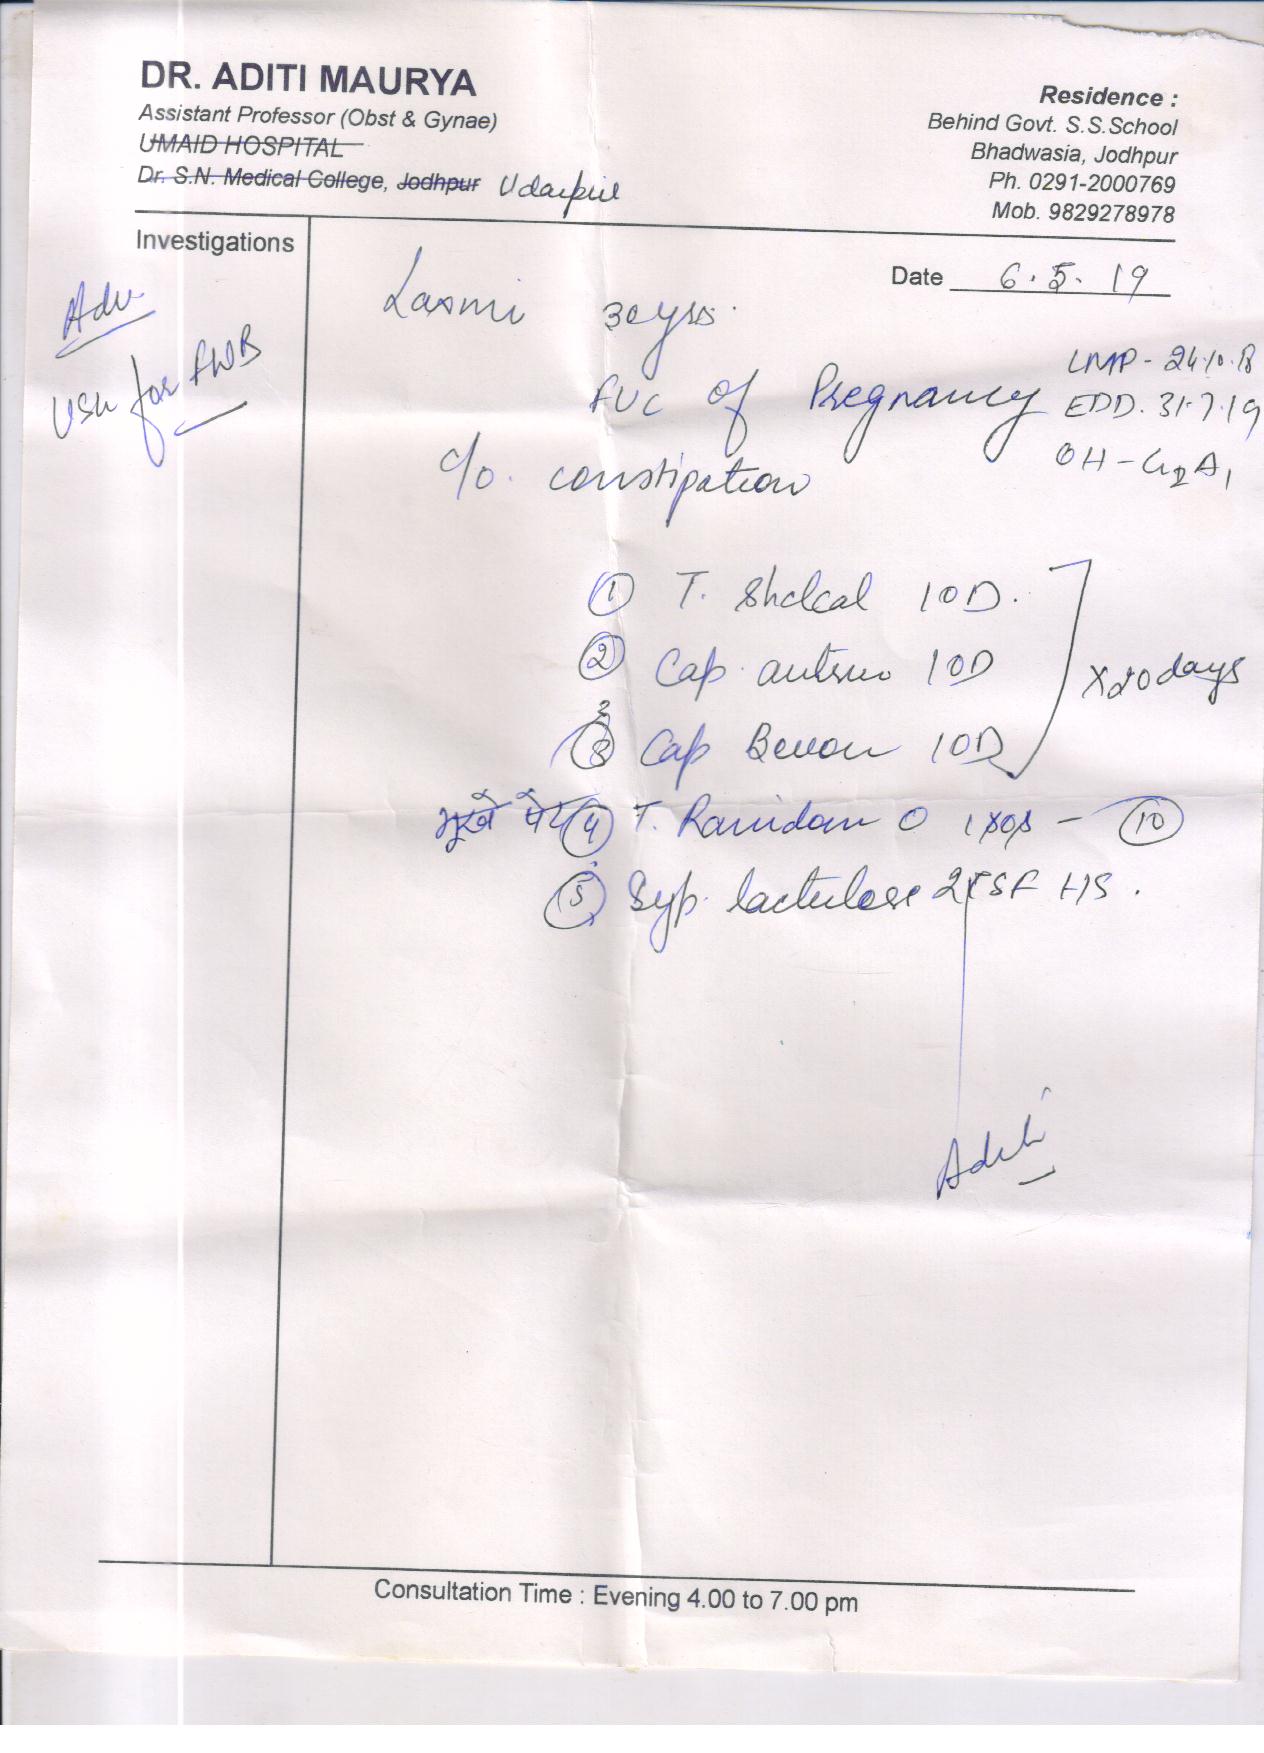 DR. ADITI MAURYA
Assistant Professor (Obst & Gynae)
UMAID HOSPITAL
Dr. S.N. Medical College, Jodhpur Udaipur
Residence :
Behind Govt. S.S.School
Bhadwasia, Jodhpur
Ph. 0291-2000769
Mob. 9829278978
Investigations
Date 6.5.19
Adv
USG for FWB
Laxmi 30yrs.
FUC of Pregnancy
LMP - 24.10.18
EDD. 31.7.19
OH - G2A1
c/o. constipation
① T. Shelcal 10D.
② Cap. 10D
③ Cap Bevon 10D
x20days
भूखे पेट ④ T. Ranidom O 1 SOS - ⑩
⑤ Syp. lactulose 2TSF HS.
Aditi
Consultation Time : Evening 4.00 to 7.00 pm